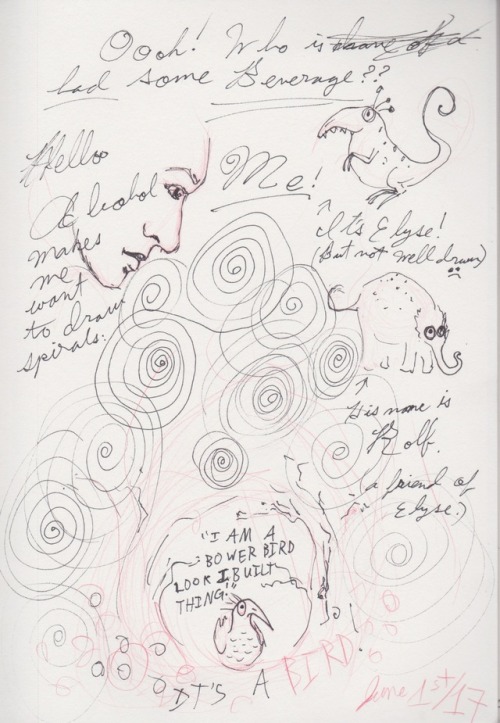 Oooh! Who is
had some Beverage??
Hello
Alcohol
makes
me
want
to draw
spirals.
Me!
It's Elyse!
(But not well drawn)
His name is
Rolf.
(a friend of
Elyse.)
"I AM A
BOWER BIRD
LOOK I BUILT
THING."
IT'S A BIRD!
June 1st/17